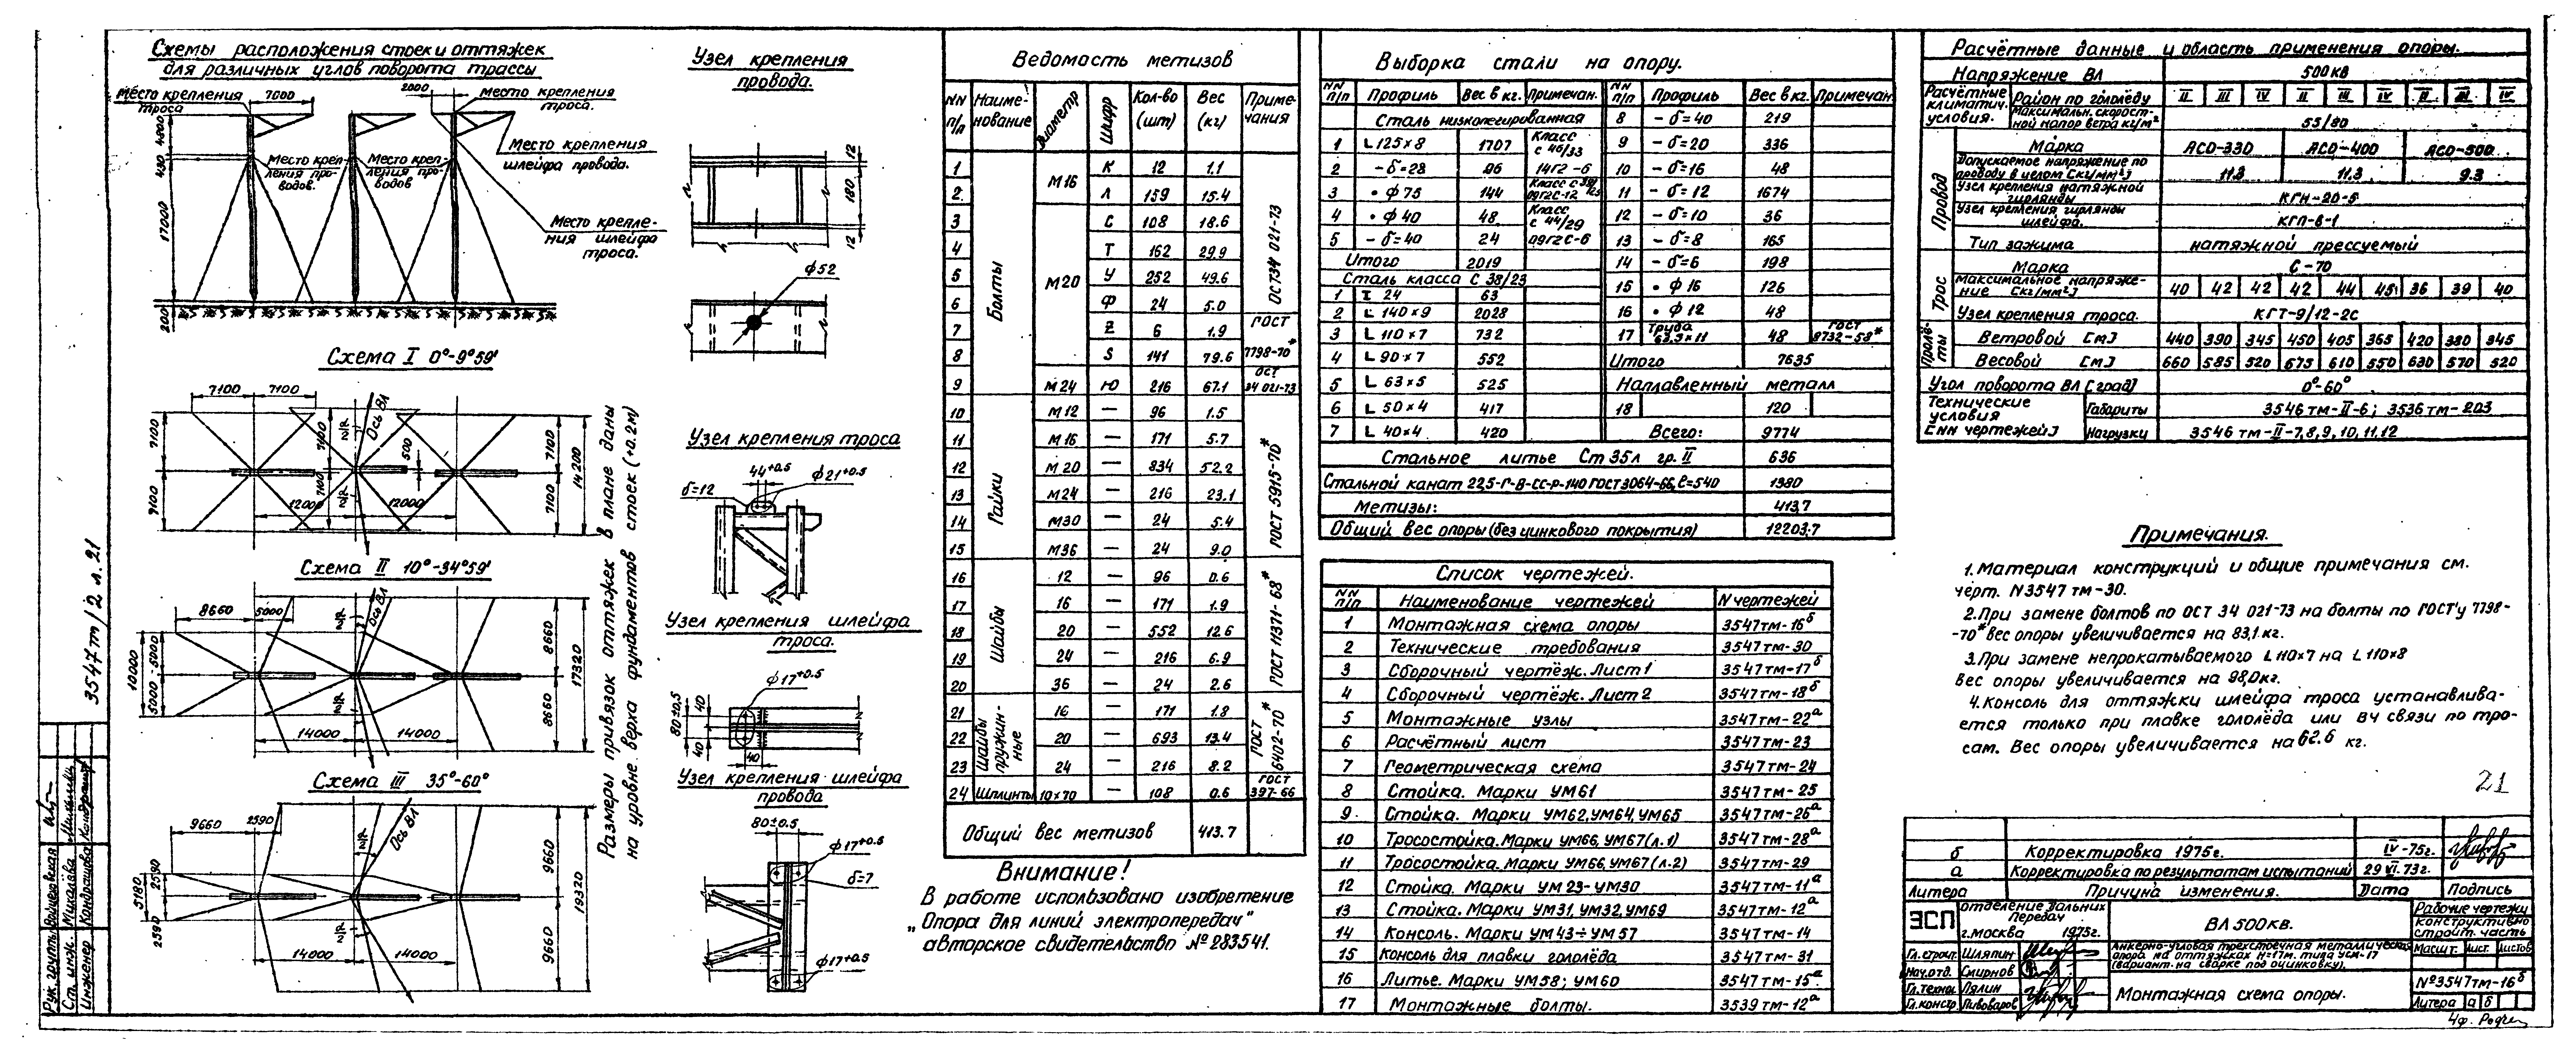 Схемы расположения стоек и оттяжек
для различных углов поворота трассы
Место крепления
троса
7000
2000
Место крепления
троса.
4800
430
17000
200
Место креп-
ления про-
водов.
Место креп-
ления про-
водов
Место крепления
шлейфа провода.
Место крепле-
ния шлейфа
троса.
Схема I 0°-9°59'
7100
7100
7100
7100
7100
7100
500
7100
7100
14200
12000
12000
Ось ВЛ
Схема II 10°-34°59'
8660
5000
10000
5000
5000
8660
8660
17320
14000
14000
Ось ВЛ
Схема III 35°-60°
9660
2590
5180
2590
2590
9660
9660
19320
14000
14000
Ось ВЛ
Размеры привязок оттяжек в плане даны
на уровне верха фундаментов стоек (+0.2м)
Узел крепления
провода.
12
180
12
ф52
Узел крепления троса
44+0.5
ф21+0.5
δ=12
Узел крепления шлейфа
троса.
ф17+0.5
80±0.5
40
40
40
Узел крепления шлейфа
провода
80±0.5
ф17+0.5
δ=7
ф17+0.5
Ведомость метизов
NN п/п Наиме-нование Диаметр Шифр Кол-во (шт) Вес (кг) Приме-чания
Болты
1 М16 К 12 1.1 ОСТ34 021-73
2 Л 159 15.4
3 М20 С 108 18.6
4 Т 162 29.9
5 У 252 49.6
6 Ф 24 5.0
7 Z 6 1.9 ГОСТ
8 S 141 79.6 7798-70*
9 М24 Ю 216 67.1 ОСТ 34 021-73
Гайки
10 М12 — 96 1.5 ГОСТ 5915-70*
11 М16 — 171 5.7
12 М20 — 834 52.2
13 М24 — 216 23.1
14 М30 — 24 5.4
15 М36 — 24 9.0
Шайбы
16 12 — 96 0.6 ГОСТ 11371-68*
17 16 — 171 1.9
18 20 — 552 12.6
19 24 — 216 6.9
20 36 — 24 2.6
Шайбы пружин-ные
21 16 — 171 1.8 ГОСТ 6402-70*
22 20 — 693 13.4
23 24 — 216 8.2
24 Шплинты 10×70 — 108 0.6 ГОСТ 397-66
Общий вес метизов 413.7
Внимание!
В работе использовано изобретение
„Опора для линий электропередач"
авторское свидетельство №283541.
Выборка стали на опору.
NN п/п Профиль Вес в кг. Примечан.
Сталь низколегированная
1 L 125×8 1707 Класс с 46/33
2 - δ=28 96 14Г2-6
3 • ф 75 144 09Г2С-12
4 • ф 40 48 Класс с 44/29
5 - δ=40 24 09Г2С-6
Итого 2019
Сталь класса С 38/23
1 I 24 63
2 L 140×9 2028
3 L 110×7 732
4 L 90×7 552
5 L 63×5 525
6 L 50×4 417
7 L 40×4 420
NN п/п Профиль Вес в кг. Примечан
8 - δ=40 219
9 - δ=20 336
10 - δ=16 48
11 - δ=12 1674
12 - δ=10 36
13 - δ=8 165
14 - δ=6 198
15 • ф 16 126
16 • ф 12 48
17 Труба 63.5×11 48 ГОСТ 8732-58*
Итого 7635
Наплавленный металл
18 120
Всего: 9774
Стальное литье Ст 35л гр. II 636
Стальной канат 22,5-Г-В-СС-Р-140 ГОСТ 3064-66, ℓ=540 1380
Метизы: 413,7
Общий вес опоры (без цинкового покрытия) 12203.7
Список чертежей.
NN п/п Наименование чертежей N чертежей
1 Монтажная схема опоры 3547тм-16б
2 Технические требования 3547тм-30
3 Сборочный чертёж. Лист 1 3547тм-17б
4 Сборочный чертёж. Лист 2 3547тм-18б
5 Монтажные узлы 3547тм-22а
6 Расчётный лист 3547тм-23
7 Геометрическая схема 3547тм-24
8 Стойка. Марки УМ61 3547тм-25
9 Стойка. Марки УМ62, УМ64, УМ65 3547тм-26а
10 Тросостойка. Марки УМ66, УМ67 (л.1) 3547тм-28а
11 Тросостойка. Марки УМ66, УМ67 (л.2) 3547тм-29
12 Стойка. Марки УМ 23-УМ30 3547тм-11а
13 Стойка. Марки УМ31, УМ32, УМ69 3547тм-12а
14 Консоль. Марки УМ43÷УМ57 3547тм-14
15 Консоль для плавки гололёда 3547тм-31
16 Литье. Марки УМ58; УМ60 3547тм-15а
17 Монтажные болты. 3539тм-12а
Расчётные данные и область применения опоры.
Напряжение ВЛ 500кв
Расчётные климатич. условия. Район по гололёду II III IV II III IV II III IV
Максимальн. скорост-ной напор ветра кг/м² 55/80
Провод
Марка АСО-330 АСО-400 АСО-500
Допускаемое напряжение по проводу в целом [кг/мм²] 11.3 11.3 9.3
Узел крепления натяжной гирлянды КГН-20-5
Узел крепления гирлянды шлейфа. КГП-6-1
Тип зажима натяжной прессуемый
Трос
Марка С-70
Максимальное напряже-ние [кг/мм²] 40 42 42 42 44 45 36 39 40
Узел крепления троса. КГТ-9/12-2с
Пролё-ты
Ветровой [м] 440 390 345 450 405 365 420 380 345
Весовой [м] 660 585 520 675 610 550 630 570 520
Угол поворота ВЛ [град] 0°-60°
Технические условия [NN чертежей]
Габариты 3546тм-II-6; 3536тм-203
Нагрузки 3546 тм-II-7,8,9,10,11,12
Примечания.
1. Материал конструкций и общие примечания см.
черт. N3547тм-30.
2. При замене болтов по ОСТ 34 021-73 на болты по ГОСТ'у 7798-
-70* вес опоры увеличивается на 83,1 кг.
3. При замене непрокатываемого L 110×7 на L 110×8
вес опоры увеличивается на 98,0кг.
4. Консоль для оттяжки шлейфа троса устанавлива-
ется только при плавке гололёда или ВЧ связи по тро-
сам. Вес опоры увеличивается на 62.6 кг.
21
б Корректировка 1975г. IV-75г.
а Корректировка по результатам испытаний 29 VI.73г.
Литера Причина изменения. Дата Подпись
ЭСП
Отделение Дальних
Передач
г. Москва 1975г.
ВЛ 500кв.
Рабочие чертежи
Конструктивно
строит. часть
Гл. строит. Шляпин
Нач. отд. Смирнов
Гл. техн. Лялин
Гл. констр. Пивоваров
Анкерно-угловая трехстоечная металлическая
опора на оттяжках Н=17м. типа УСМ-17
(вариант на сварке под оцинковку).
Масшт. лист. листов
Монтажная схема опоры.
№3547тм-16б
Литера а б
3547тм/2 л.21
Рук. группы Войцеховская
Ст. инж. Михалёва
Инженер Кондрашова